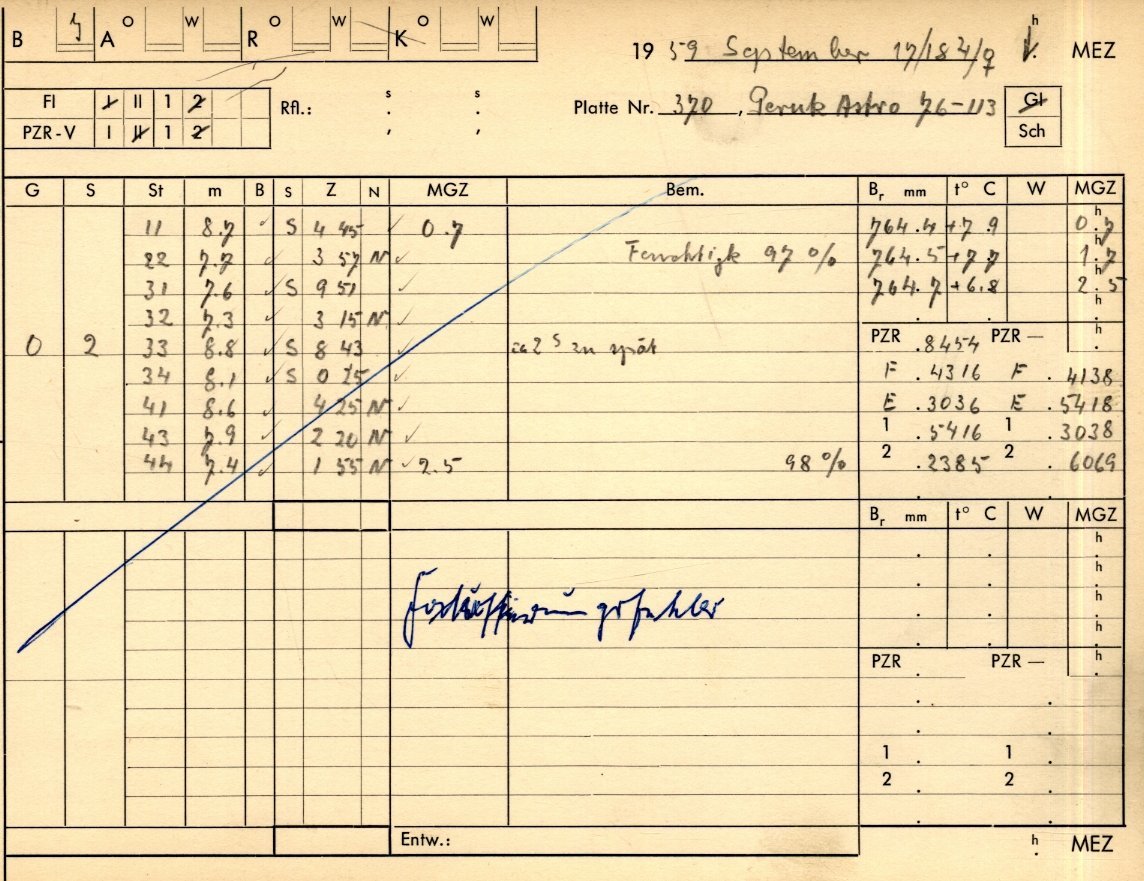 B A O W R O W K O W
19 59 September 17/18 ♃/♀ h MEZ
Fl I II 1 2 Rfl.: s s Platte Nr. 370, Perutz Astro 76-113 Gl
PZR-V I II 1 2 Sch
G S St m B S Z N MGZ Bem. Br mm t° C W MGZ
11 8.7 ✓ S 4 45 ✓ 0.7 764.4 +7.9 0h.7
22 7.7 ✓ 3 57 N ✓ Feuchtigk 97 % 764.5 +7.7 1h.7
31 7.6 ✓ S 9 51 ✓ 764.7 +6.8 2h.5
32 7.3 ✓ 3 15 N ✓ h
0 2 33 8.8 ✓ S 8 43 ✓ ca 2 s zu spät PZR .8454 PZR — h
34 8.1 ✓ S 0 15 ✓ F .4316 F .4138
41 8.6 ✓ 4 25 N ✓ E .3036 E .5418
43 7.9 ✓ 2 20 N ✓ 1 .5416 1 .3038
44 7.4 ✓ 1 55 N ✓ 2.5 98 % 2 .2385 2 .6069
Br mm t° C W MGZ
h
h
h
h
PZR PZR — h
1 1
2 2
Entw.: h MEZ